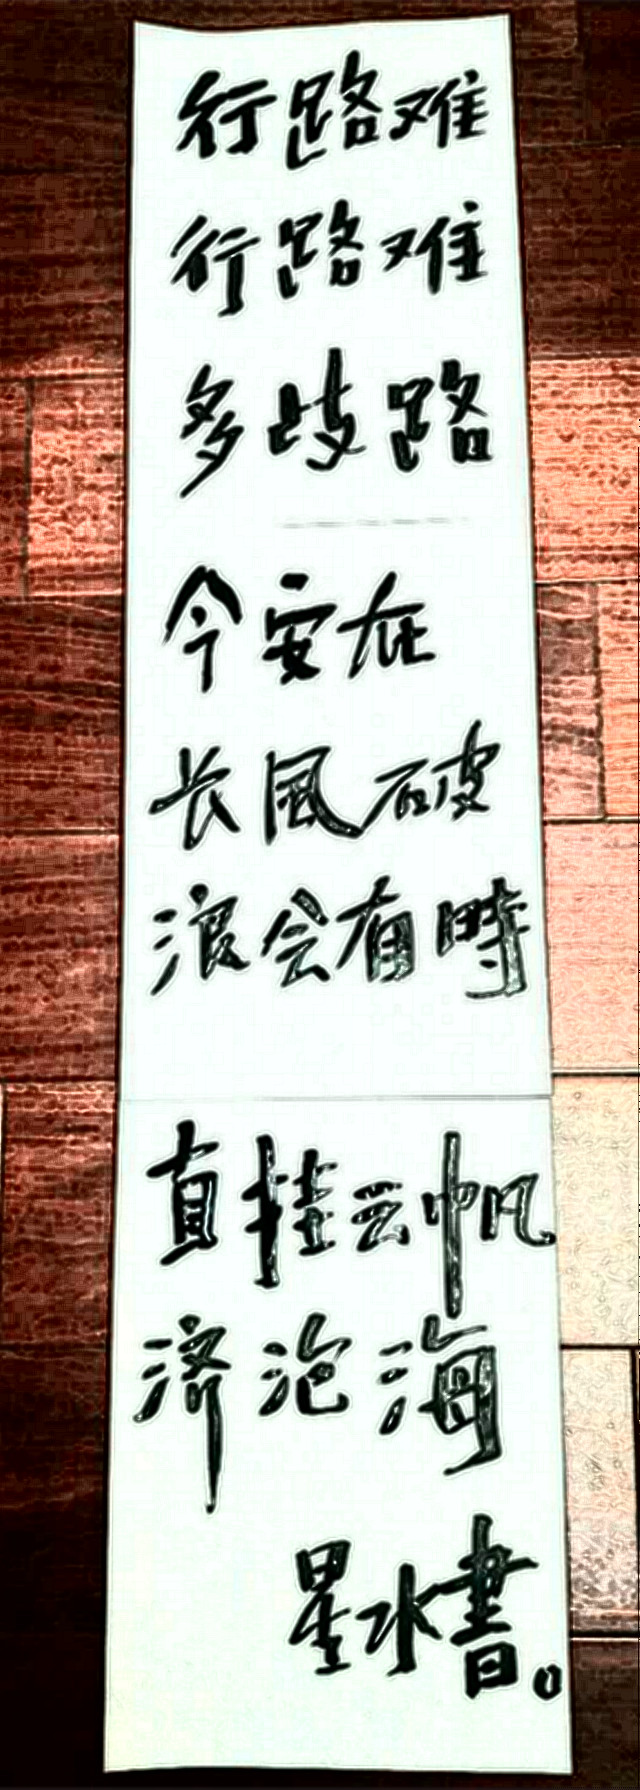 行路难
行路难
多歧路
今安在
长风破
浪会有時
直挂云帆
济沧海
星水書。